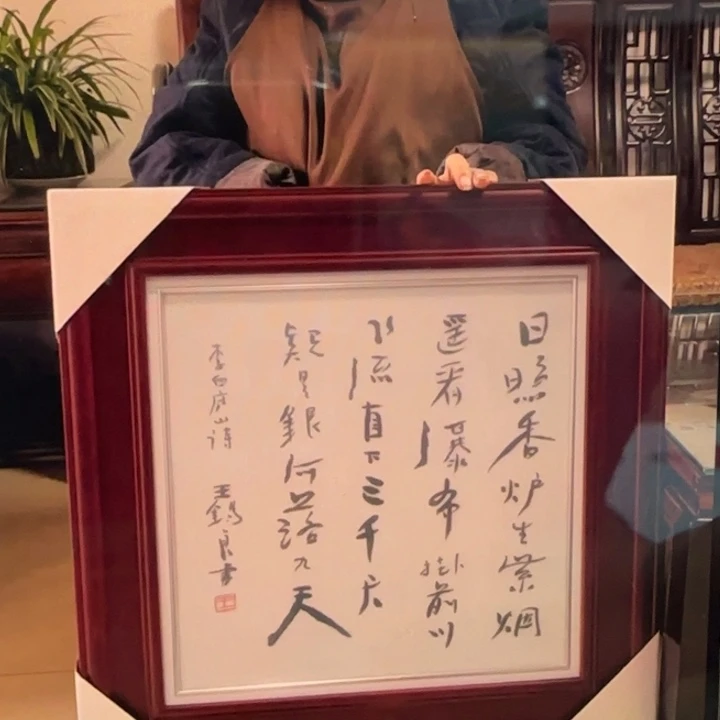 日照香炉生紫烟
遥看瀑布掛前川
飞流直下三千尺
疑是銀河落九天
李白庐山詩 王錫良書